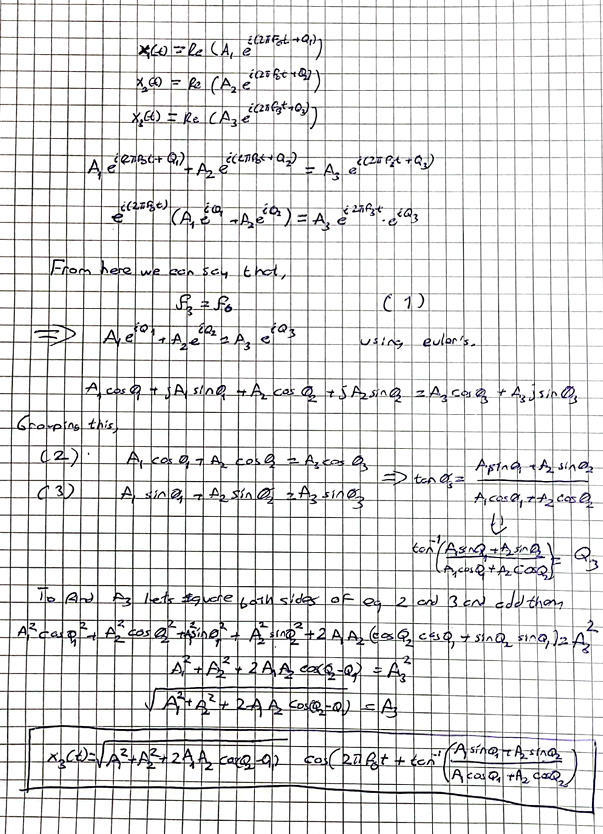 x₁(t) = Re (A₁ e^{i(2πf₀t + Q₁)})
x₂(t) = Re (A₂ e^{i(2πf₀t + Q₂)})
x₃(t) = Re (A₃ e^{i(2πf₃t + Q₃)})
A₁ e^{i(2πf₀t + Q₁)} + A₂ e^{i(2πf₀t + Q₂)} = A₃ e^{i(2πf₃t + Q₃)}
e^{i(2πf₀t)} (A₁ e^{iQ₁} + A₂ e^{iQ₂}) = A₃ e^{i2πf₃t} · e^{iQ₃}
From here we can say that,
f₃ = f₀ (1)
⇒ A₁ e^{iQ₁} + A₂ e^{iQ₂} = A₃ e^{iQ₃} using euler's.
A₁ cosQ₁ + jA₁ sinQ₁ + A₂ cosQ₂ + jA₂ sinQ₂ = A₃ cosQ₃ + A₃ j sinQ₃
Grouping this,
(2). A₁ cosQ₁ + A₂ cosQ₂ = A₃ cosQ₃ ⇒ tanQ₃ = (A₁ sinQ₁ + A₂ sinQ₂)/(A₁ cosQ₁ + A₂ cosQ₂)
(3) A₁ sinQ₁ + A₂ sinQ₂ = A₃ sinQ₃
⇓
tan⁻¹((A₁ sinQ₁ + A₂ sinQ₂)/(A₁ cosQ₁ + A₂ cosQ₂)) = Q₃
To find A₃ lets square both sides of eq 2 and 3 and add them
A₁² cosQ₁² + A₂² cosQ₂² + A₁² sinQ₁² + A₂² sinQ₂² + 2A₁A₂ (cosQ₂ cosQ₁ + sinQ₂ sinQ₁) = A₃²
A₁² + A₂² + 2A₁A₂ cos(Q₂-Q₁) = A₃²
√(A₁² + A₂² + 2A₁A₂ cos(Q₂-Q₁)) = A₃
x₃(t) = √(A₁² + A₂² + 2A₁A₂ cos(Q₂-Q₁)) cos(2πf₀t + tan⁻¹((A₁ sinQ₁ + A₂ sinQ₂)/(A₁ cosQ₁ + A₂ cosQ₂)))